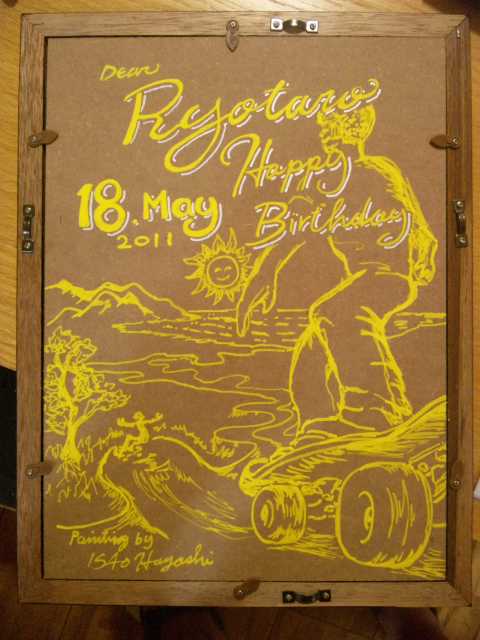 Dear
Ryotaro
Happy
18. May
Birthday
2011
Painting by
ISAO Hayashi